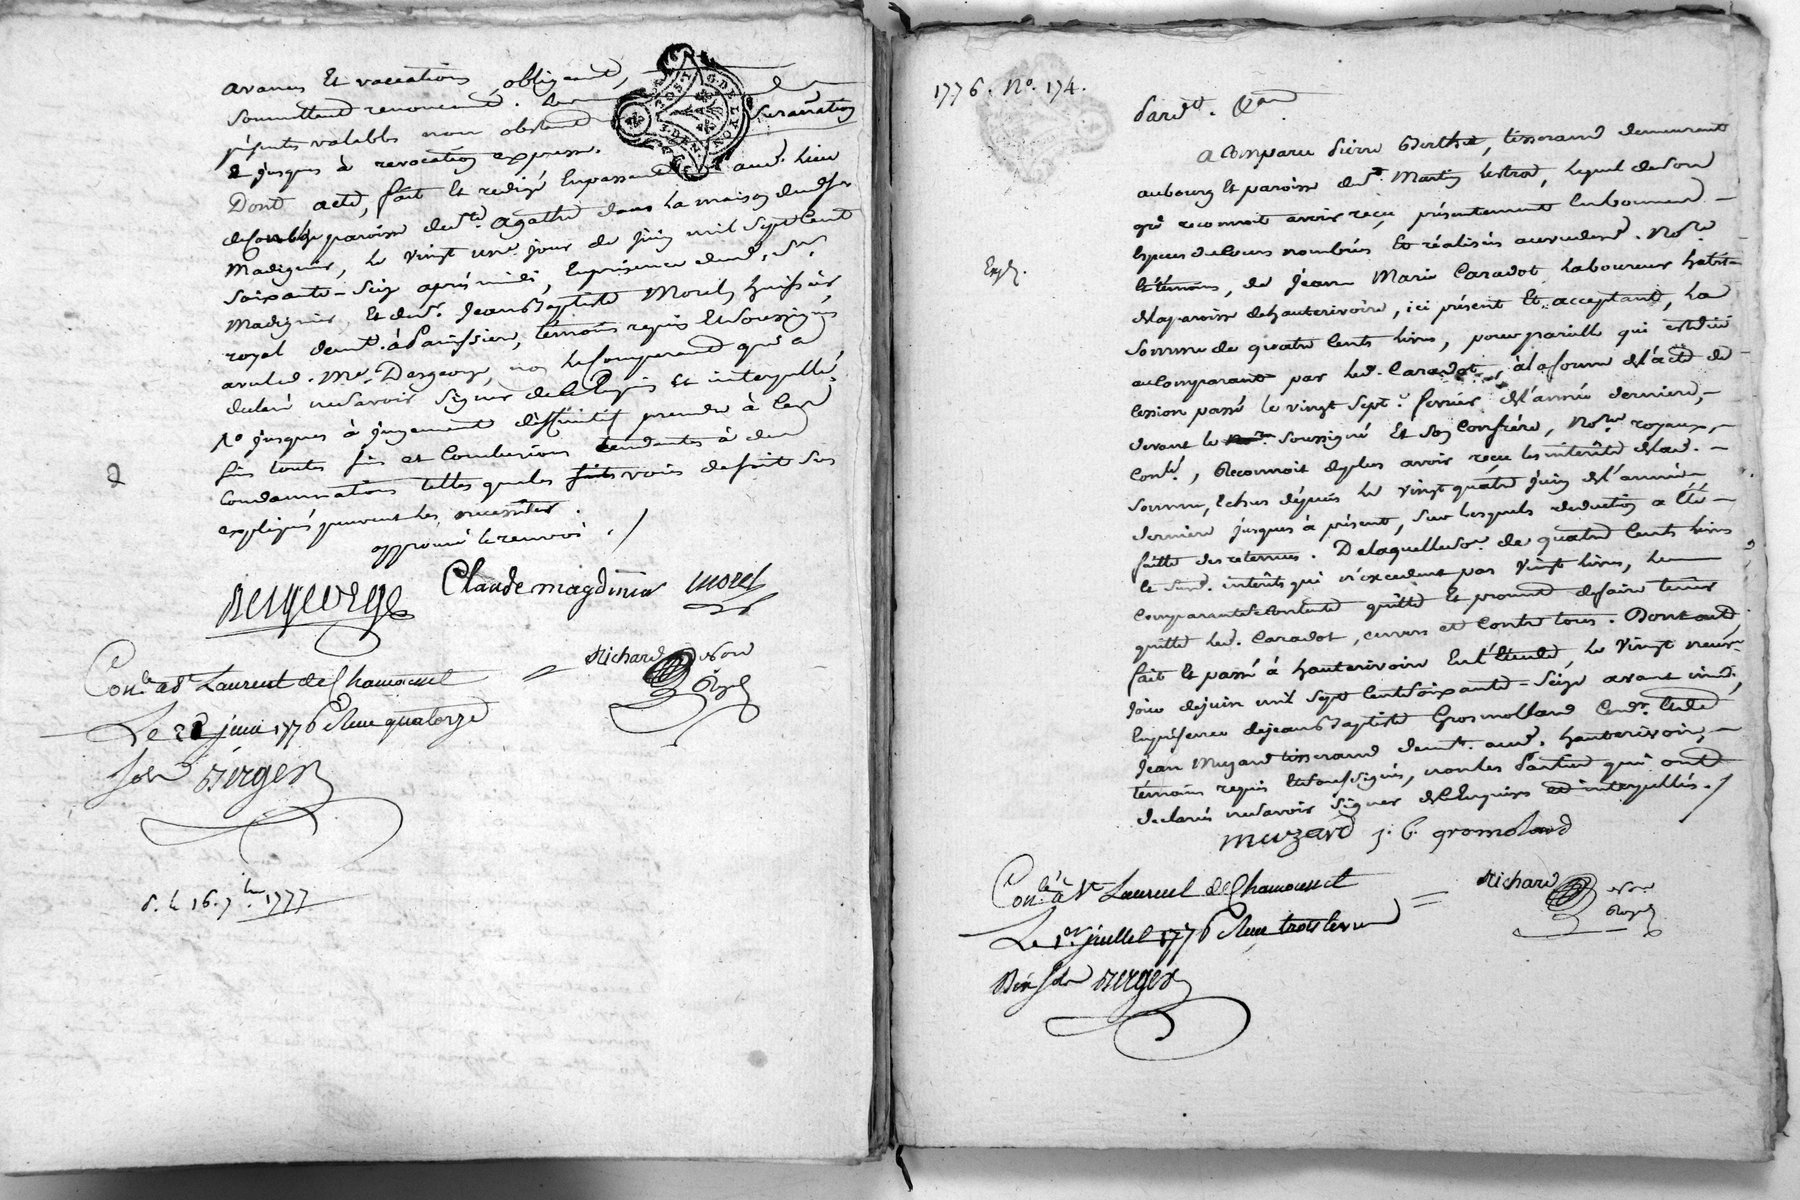 avances et vaccations, obligeant,
soumettant renonceant.
présents valables non obstant Surannation
& jusques à revocation expresse.
Dont acte, fait et redigé en passant aud. lieu
de paroisse de Ste. Agathe dans la maison dud. Sr
Madignier, le vingt une. jour de juin mil sept cent
soixante-seize après midi, en présence dud. Sr.
Madignier, et du Sr. Jean Baptiste Morel huissier
royal demt. à Panissière, témoins requis et soussignés
avec led. Me. Desgeorge, non le comparant qui a
declaré ne savoir signer de ce enquis et interpellé.
& jusques à jugement déffinitif prendre à ces
fins toutes fins et conclusions tendantes à des
condamnations telles que les faits voies de fait sus
expliqués peuvent les necessiter.
approuvé le renvoi ./
Desgeorge Claude magdinier morel
Richard No.re Royal
Con.lé à St Laurent de Chamousset
Le 28 juin 1776 Reçu quatorze s.
Verger
d. l. 16. 7bre 1777
1776. No. 174.
Pardt. &a
a comparu Pierre Berthet, tisserand demeurant
au bourg et paroisse de St. Martin Lestra, lequel de son
gré reconnoit avoir reçu présentement en bonnes -
espèces de cours nombrés et réalisés au vu desd. No.re
Exp.
et témoins, de Jean Marie Caradot laboureur habit-
de la paroisse de hauterivoire, ici présent et acceptant, la
somme de quatre cents livres, pour pareille qui est due
au comparant par led. Caradot, à la forme de l'acte de
cession passé le vingt sept. fevrier de l'année dernière, -
devant le soussigné et son confrère, No.res royaux, -
conlé, Reconnoit de plus avoir reçu les intérêts de lad. -
somme, échus depuis le vingt quatre juin de l'année -
dernière jusques à présent, sur lesquels deduction a été -
faitte des retenues. De laquelle so. de quatre cents livres
le susd. intérêts qui n'excedent pas vingt livres, le
comparant se contente quitte et promet de faire tenir
quitte led. Caradot, envers et contre tous. Dont acte,
fait et passé à hauterivoire en l'étude, le vingt neuv-
jour de juin mil sept cent soixante-seize avant midi,
en présence de jean Baptiste Gromolland et de
Jean Muzard tisserand demt. aud. hauterivoire, -
témoins requis et soussignés, non les parties qui ont
declaré ne savoir signer de ce enquis et interpellés. /
muzard j. b. gromoland
Richard No.re Royal
Con.lé à St Laurent de Chamousset
Le 1er juillet 1776 Reçu trois livres
Verger